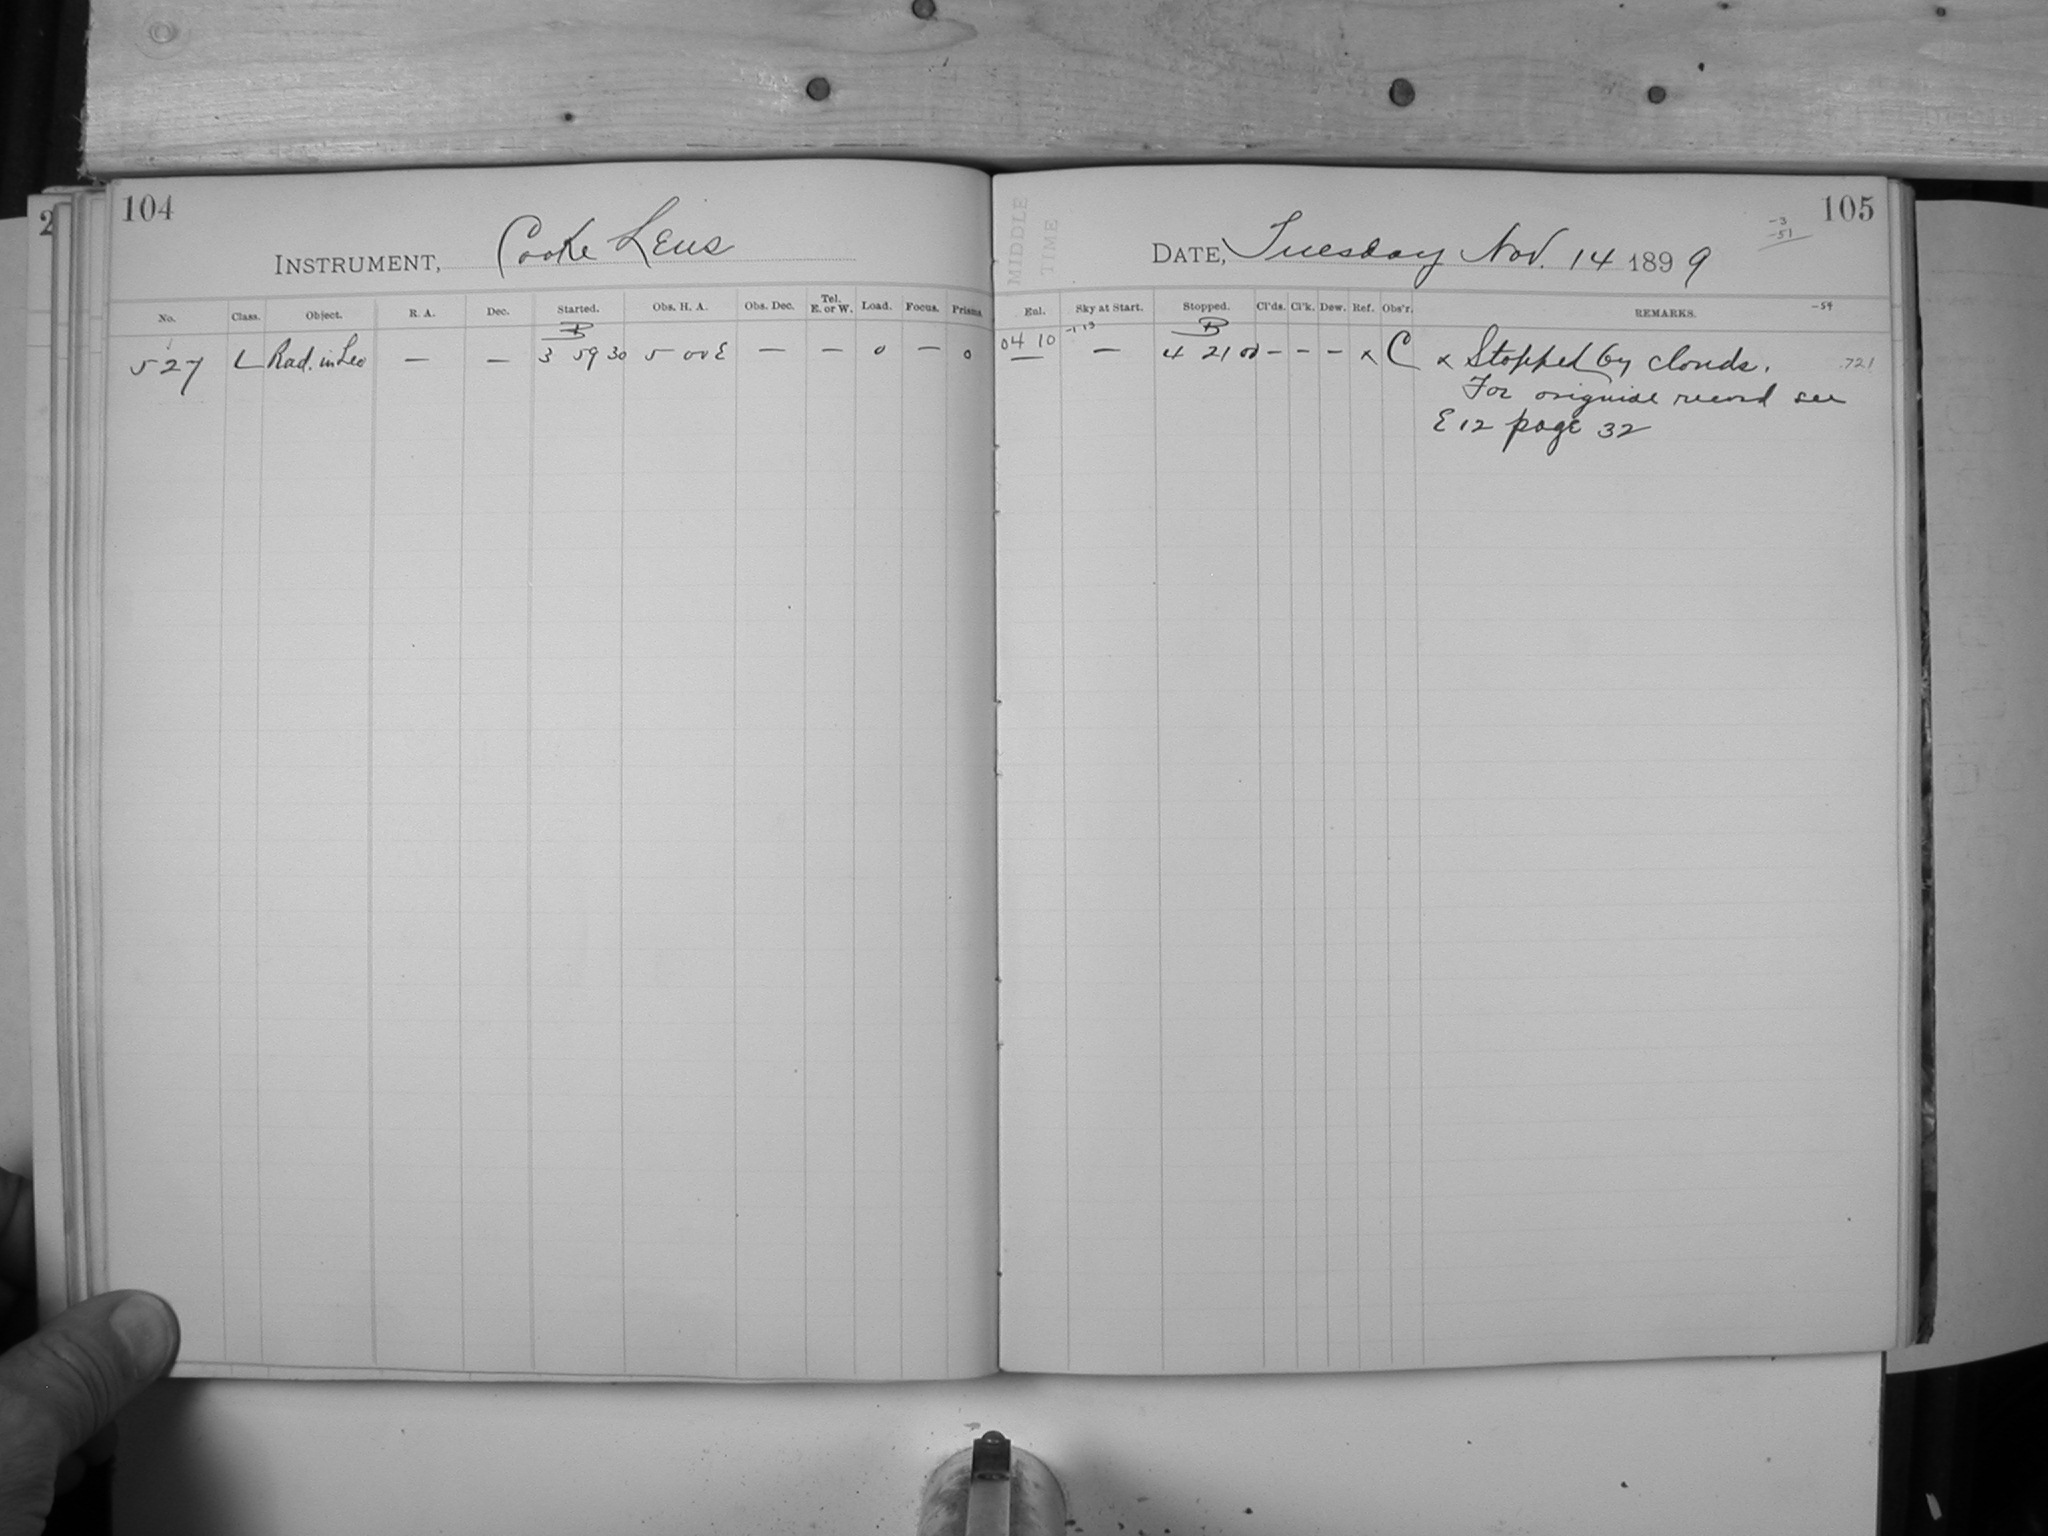 2
104
INSTRUMENT, Cooke Lens
No. Class. Object. R. A. Dec. Started. Obs. H. A. Obs. Dec. Tel. E. or W. Load. Focus. Prisms
B
527 L Rad. in Leo — — 3 59 30 5 00 E — — 0 — 0
MIDDLE
TIME
105
-3
-51
DATE, Tuesday Nov. 14 1899
-54
Enl. Sky at Start. Stopped. Cl'ds. Cl'k. Dew. Ref. Obs'r. REMARKS.
-1 13 B
04 10 — 4 21 00 - - - x C x Stopped by clouds. .721
—
For original record see
E 12 page 32